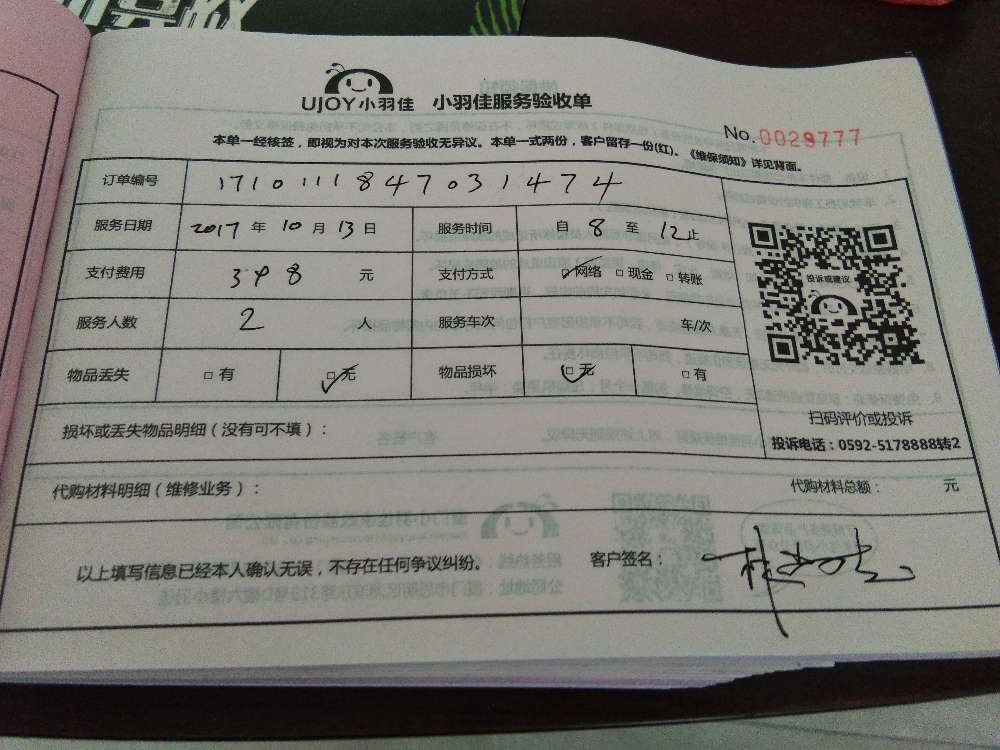 UJOY小羽佳 小羽佳服务验收单
No.0029777
本单一经核签，即视为对本次服务验收无异议。本单一式两份，客户留存一份(红)。《维保须知》详见背面。
订单编号 1710111847031474
服务日期 2017年10月13日 服务时间 自8至12止
支付费用 398元 支付方式 ☑网络 □现金 □转账
服务人数 2人 服务车次 车/次
物品丢失 □有 ☑无 物品损坏 ☑无 □有
投诉或建议
扫码评价或投诉
投诉电话：0592-5178888转2
损坏或丢失物品明细（没有可不填）：
代购材料明细（维修业务）： 代购材料总额： 元
以上填写信息已经本人确认无误，不存在任何争议纠纷。 客户签名：